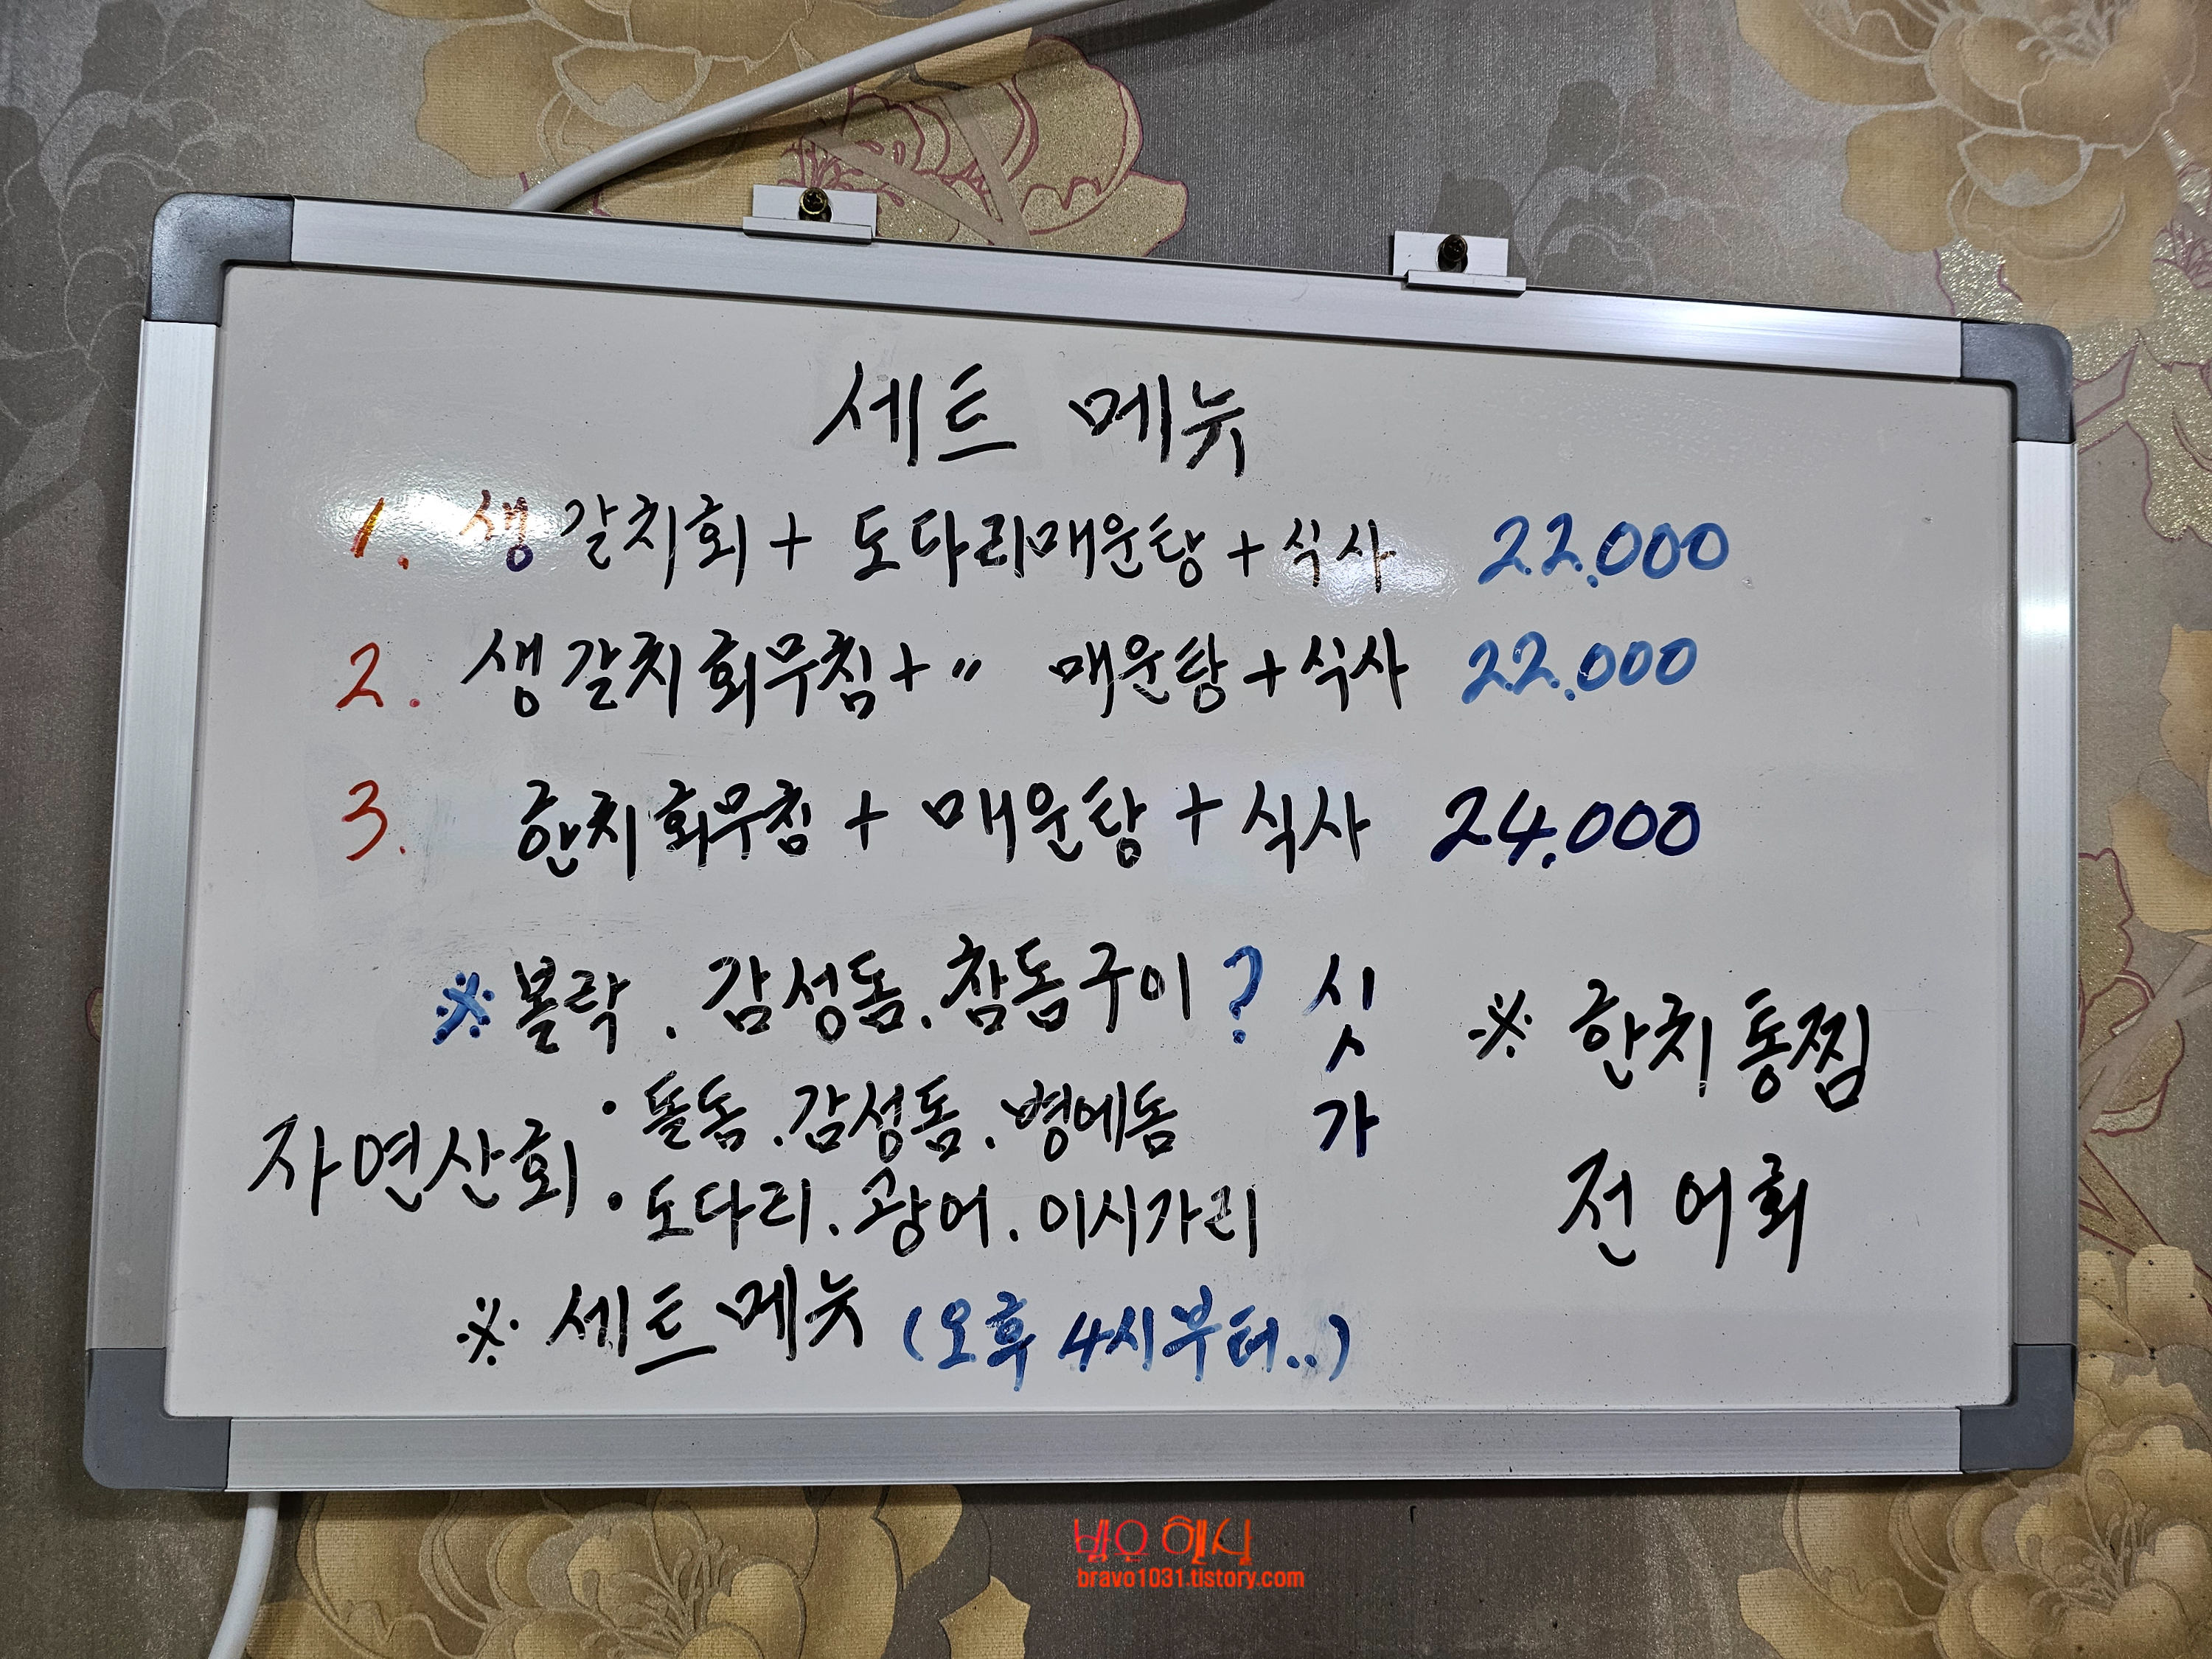 세트 메뉴
1. 생갈치회 + 도다리매운탕 + 식사 22.000
2. 생갈치회무침 + 〃 매운탕 + 식사 22.000
3. 한치회무침 + 매운탕 + 식사 24.000
※ 볼락. 감성돔. 참돔구이? 싯가
※ 한치통찜
자연산회 • 돌돔. 감성돔. 병에돔
• 도다리. 광어. 이시가리
전어회
※ 세트메뉴 (오후 4시부터..)
bravo1031.tistory.com